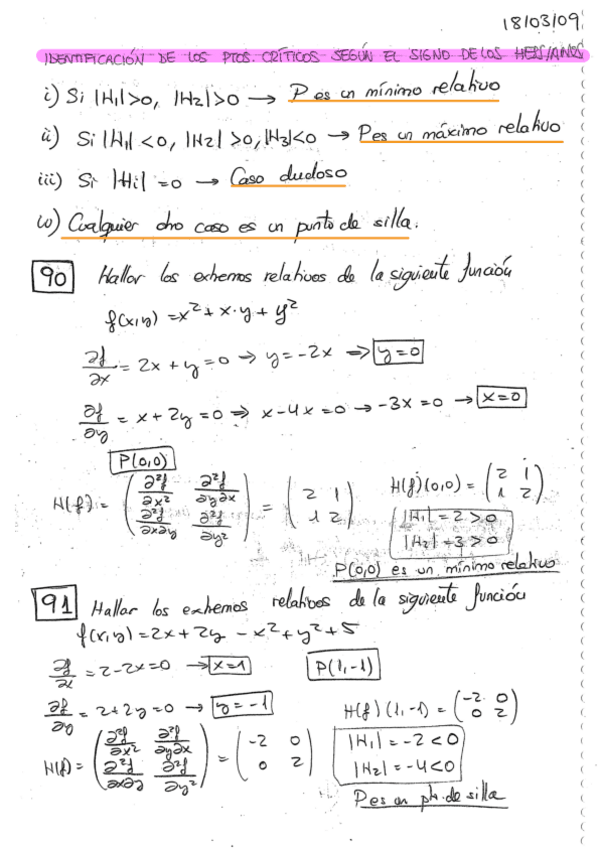 18/03/09
IDENTIFICACIÓN DE LOS PTOS. CRÍTICOS SEGÚN EL SIGNO DE LOS HESSIANOS
i) Si |H₁|>0, |H₂|>0 → P es un mínimo relativo
ii) Si |H₁|<0, |H₂|>0, |H₃|<0 → P es un máximo relativo
iii) Si |Hi| = 0 → Caso dudoso
iv) Cualquier otro caso es un punto de silla.
90 Hallar los extremos relativos de la siguiente función
f(x,y) = x² + x·y + y²
∂f/∂x = 2x + y = 0 → y = -2x ⇒ y=0
∂f/∂y = x + 2y = 0 ⇒ x - 4x = 0 → -3x = 0 → x=0
P(0,0)
H(f) = (∂²f/∂x² ∂²f/∂y∂x ; ∂²f/∂x∂y ∂²f/∂y²) = (2 1 ; 1 2) H(f)(0,0) = (2 1 ; 1 2)
|H₁| = 2 > 0
|H₂| = 3 > 0
P(0,0) es un mínimo relativo
91 Hallar los extremos relativos de la siguiente función
f(x,y) = 2x + 2y - x² + y² + 5
∂f/∂x = 2 - 2x = 0 → x=1 P(1,-1)
∂f/∂y = 2 + 2y = 0 → y = -1 H(f)(1,-1) = (-2 0 ; 0 2)
H(f) = (∂²f/∂x² ∂²f/∂y∂x ; ∂²f/∂x∂y ∂²f/∂y²) = (-2 0 ; 0 2) |H₁| = -2 < 0
|H₂| = -4 < 0
P es un pto. de silla